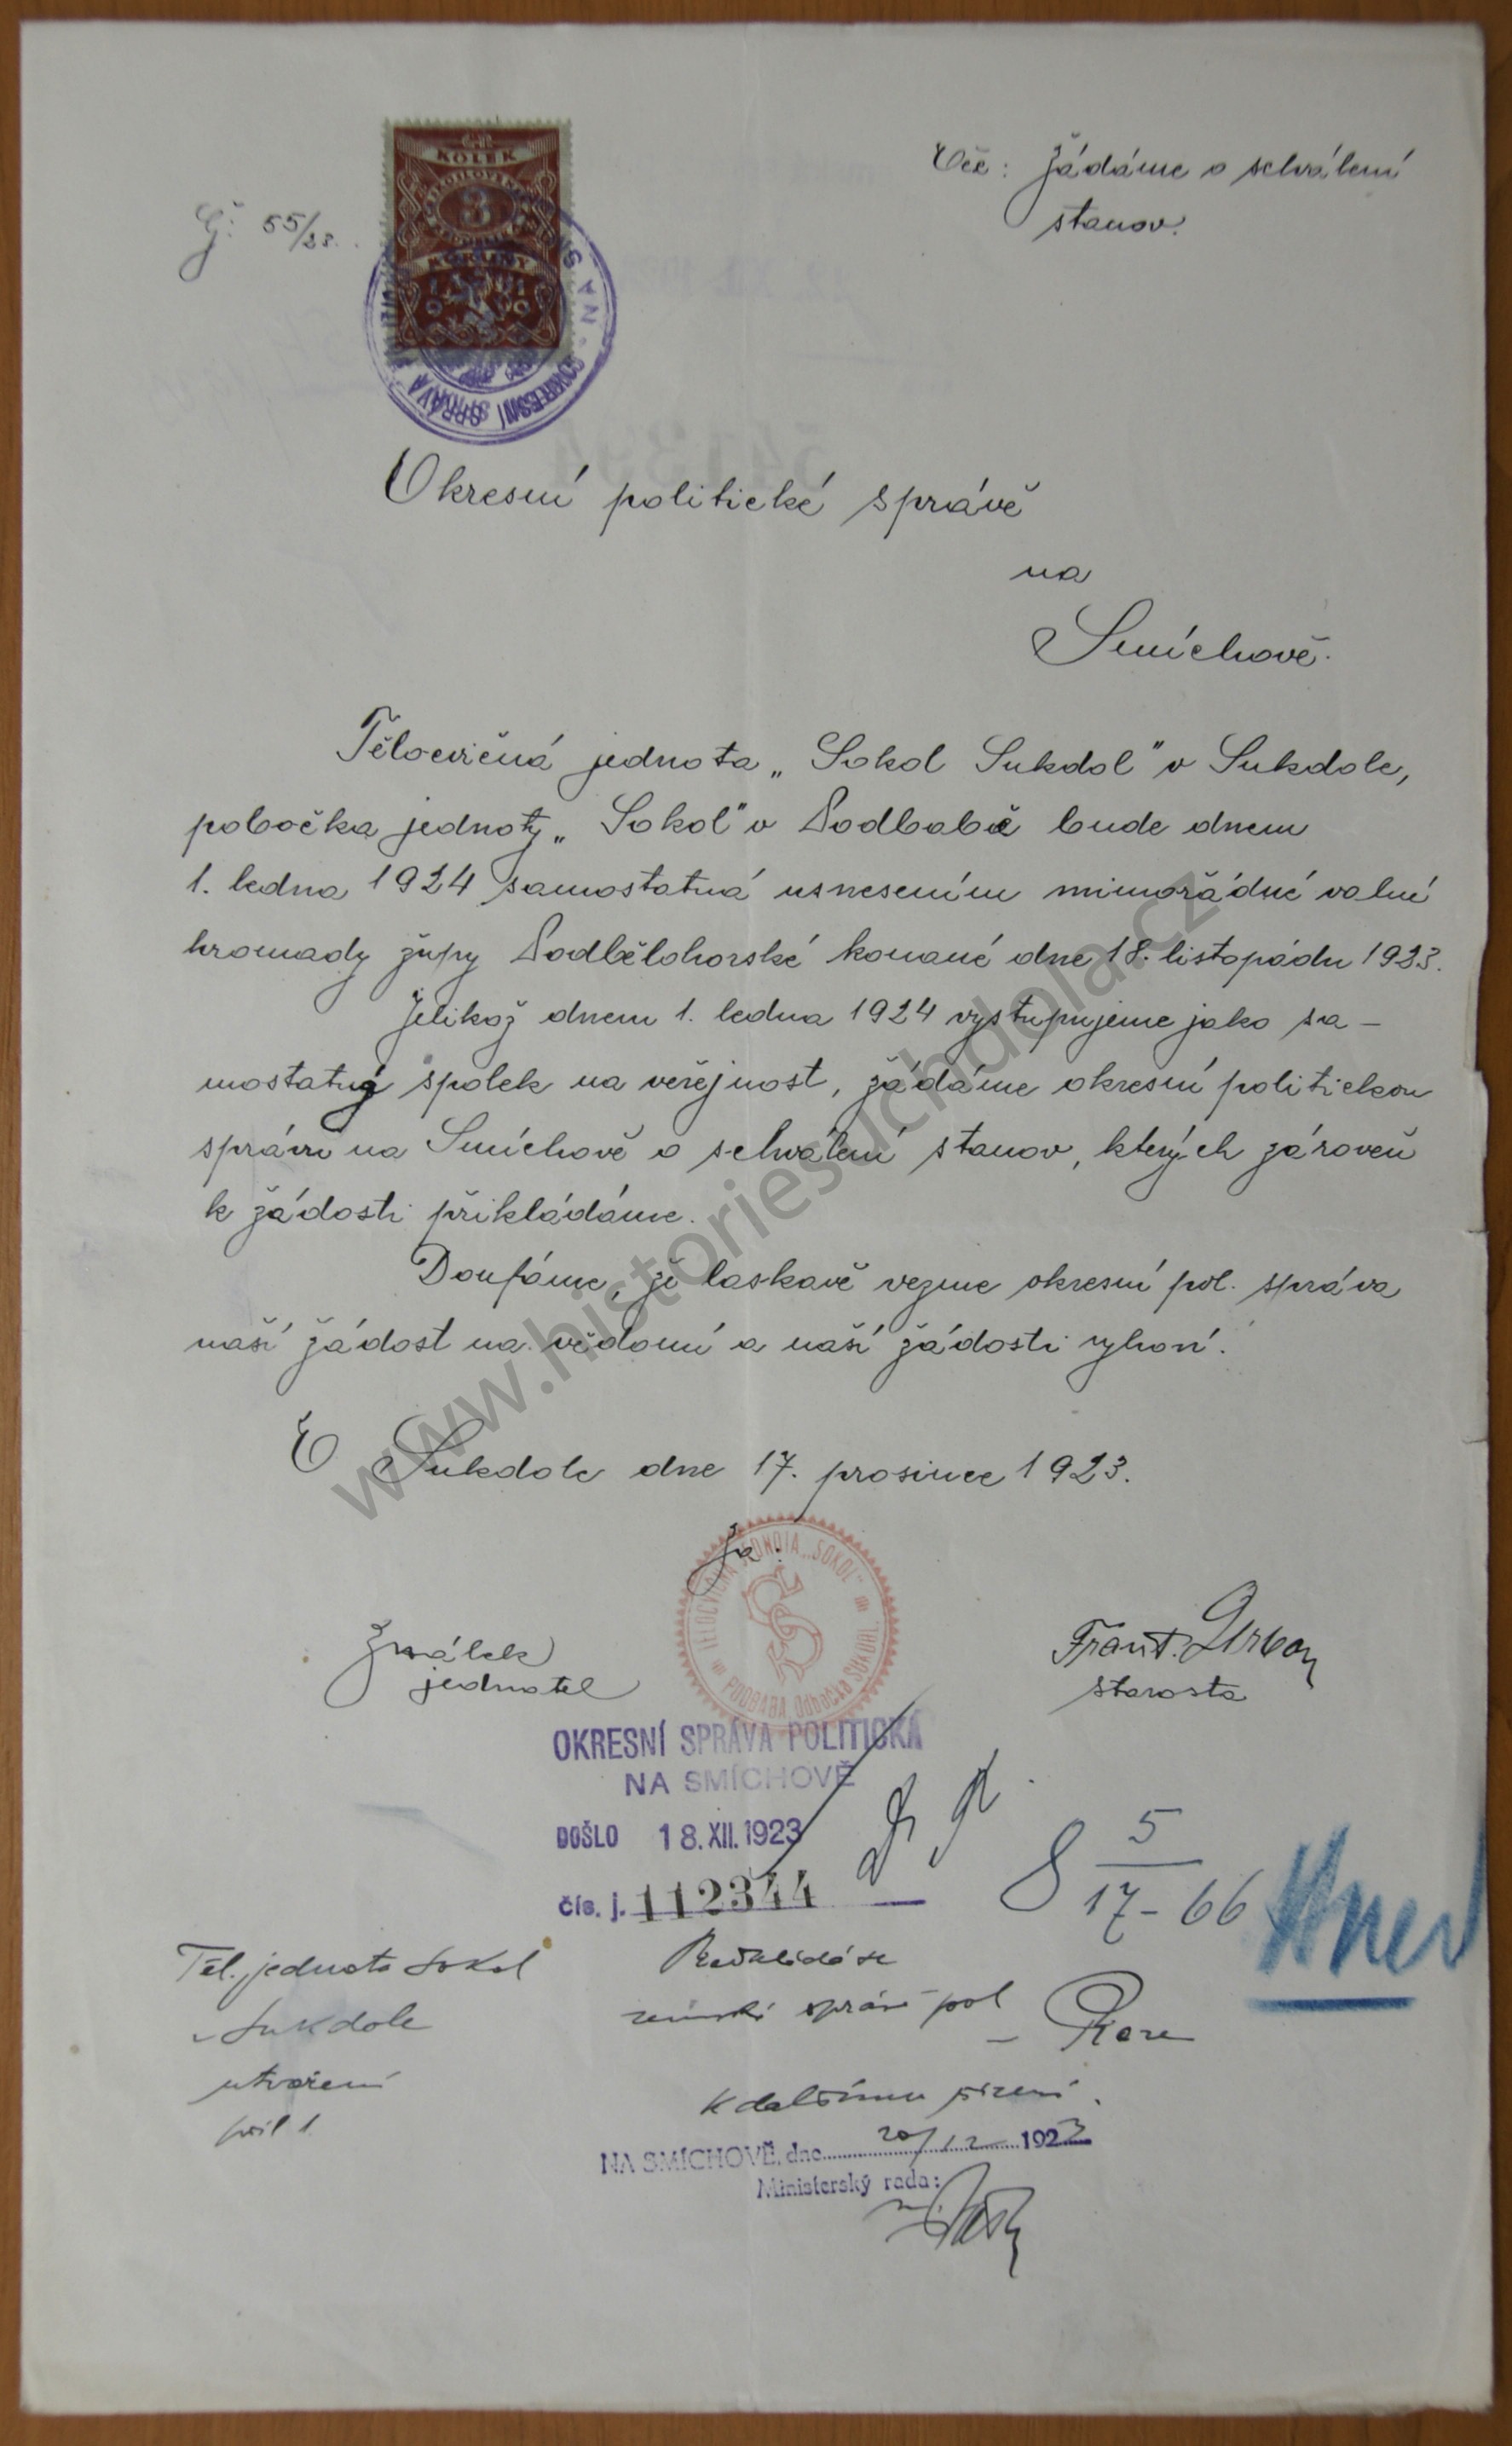 Věc: Žádáme o schválení
stanov.
Čj: 55/23.
KOLEK
3
KORUNY
OKRESNÍ SPRÁVA
NA
Okresní politické správě
na
Smíchově.
Tělocvičná jednota „Sokol Sukdol" v Sukdole,
pobočka jednoty „Sokol" v Podbabě bude dnem
1. ledna 1924 samostatná usnesením mimořádné valné
hromady župy Podbělohorské konané dne 18. listopádu 1923.
Jelikož dnem 1. ledna 1924 vystupujeme jako sa-
mostatný spolek na veřejnost, žádáme okresní politickou
správu na Smíchově o schválení stanov, kterých zároveň
k žádosti přikládáme.
Doufáme, že laskavě vezme okresní pol. správa
naší žádost na vědomí a naší žádosti vyhoví.
V Sukdole dne 17. prosince 1923.
Za:
TĚLOCVIČNÁ JEDNOTA „SOKOL" PODBABA Odbočka SUKDOL
jednatel
Frant. Urban
starosta
OKRESNÍ SPRÁVA POLITICKÁ
NA SMÍCHOVĚ
DOŠLO 18. XII. 1923
čís. j. 112344
8 5/17-66
Těl. jednota Sokol
v Sukdole
utvoření
příl 1
Předkládá se
zemské správě pol
v Praze
k dalšímu řízení.
NA SMÍCHOVĚ, dne 20/12 1923
Ministerský rada:
www.historiesuchdola.cz